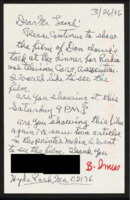 3/26/76
Dear Mr. Land:
Please continue to show
the film of Don
talk at the dinner for Radio
and Television Corr. Association.
I would like to see the
film.
Are you showing it this
Saturday 9 P.M.?
Are you showing this film
again? I saw two articles
in the printed media. I want
to see it. Thank you
B.
Hyde Park, Ma 02136